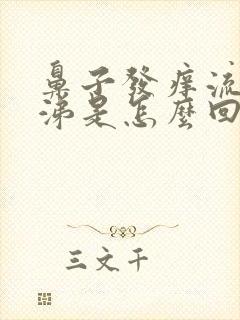 鼻子發痒流
涕是怎麼回
三文干